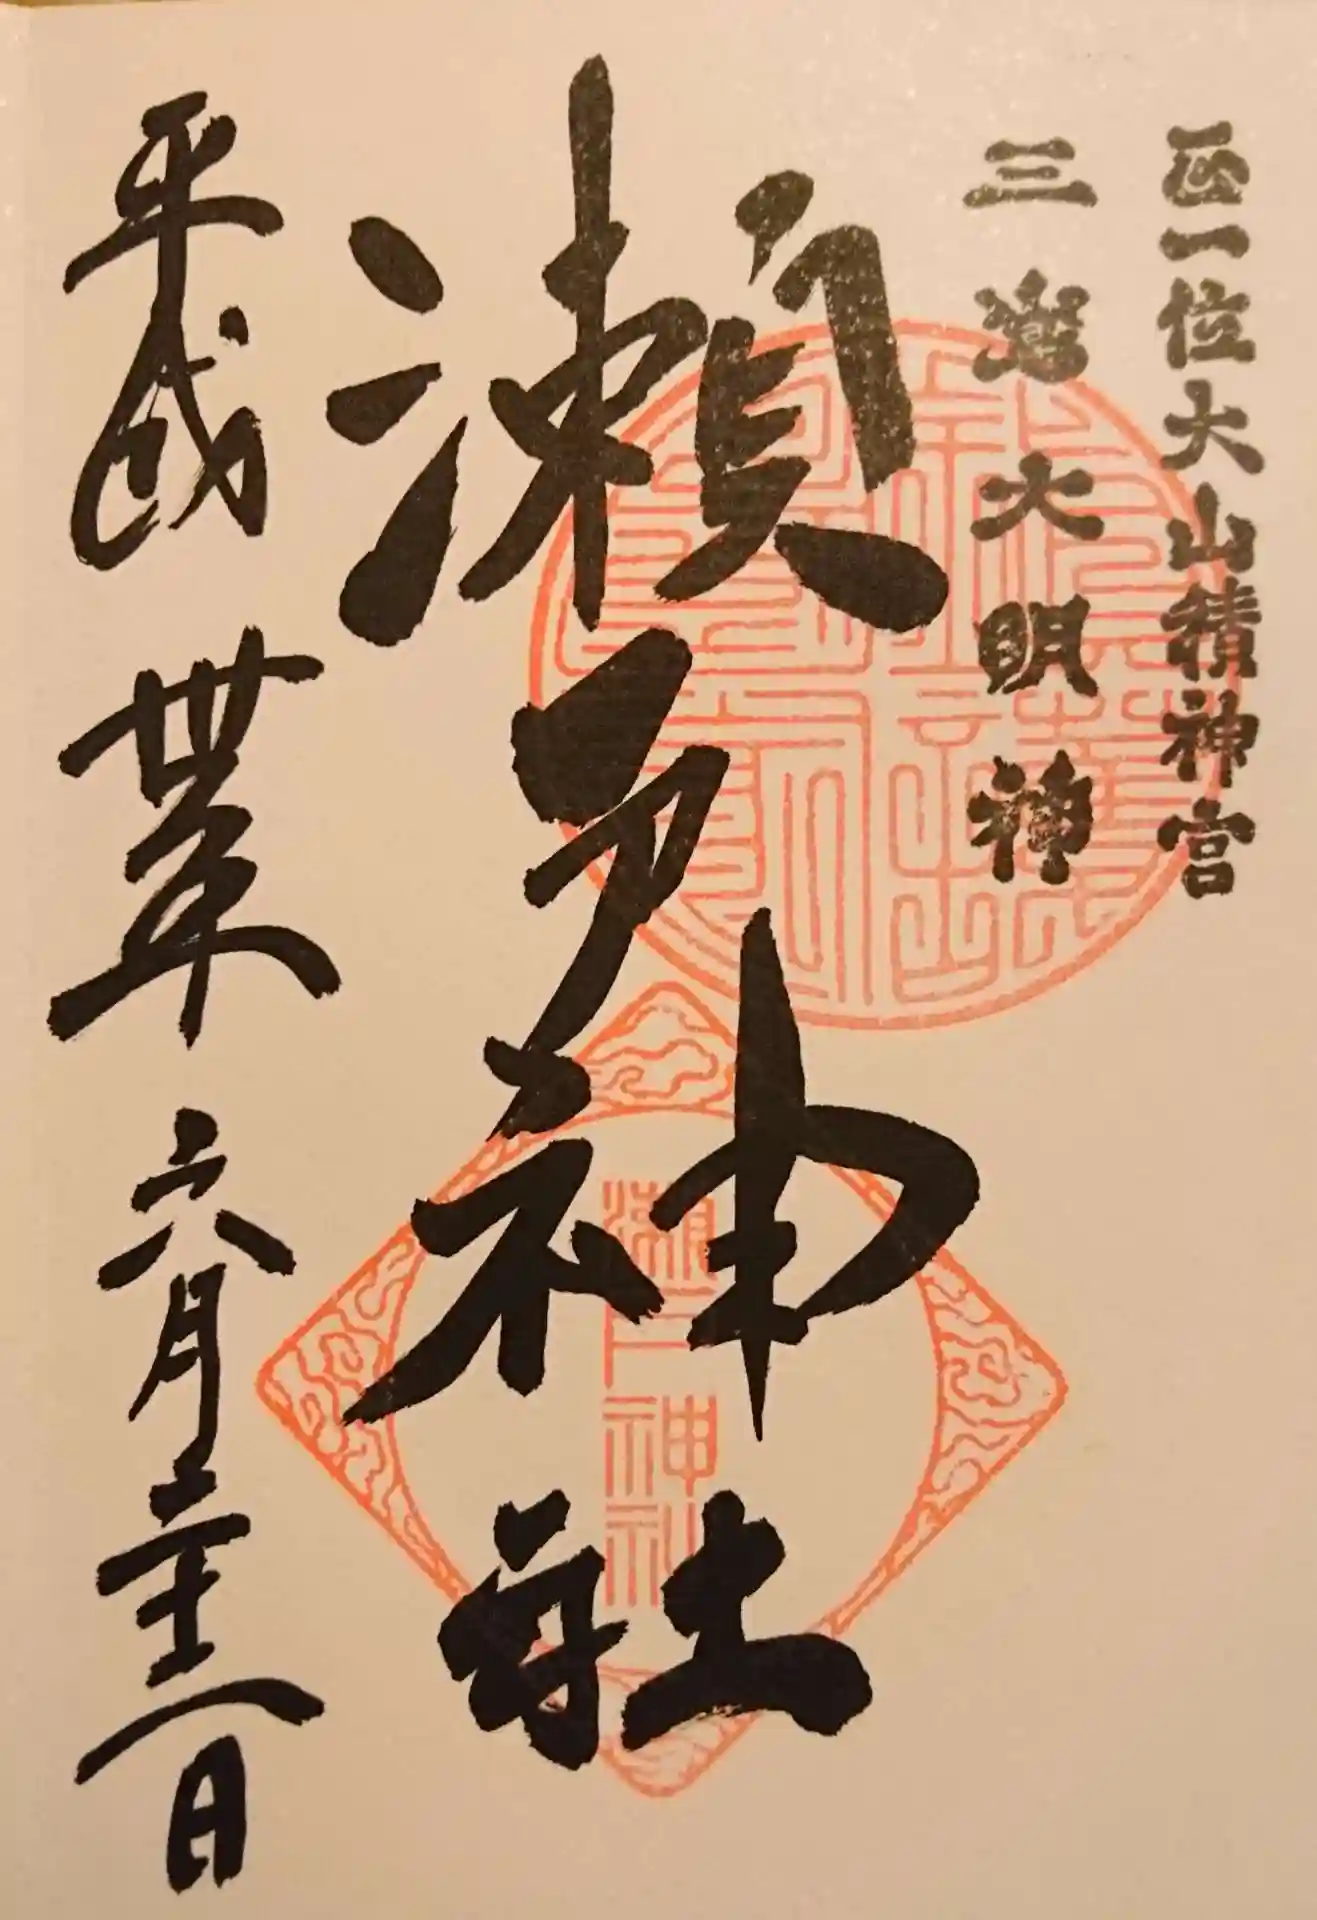 正一位大山積神宮
三嶌大明神
瀬戸神社
平成丗年六月二十二日
瀬戸神社